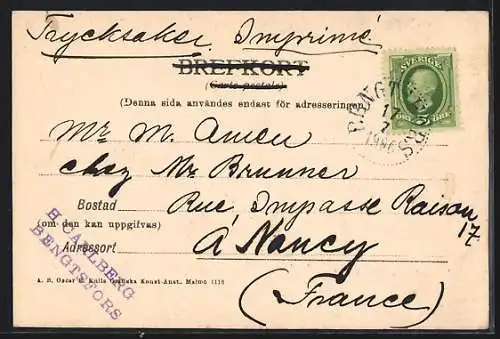 Trycksaker. Imprimé
BREFKORT
(Carte postale)
(Denna sida användes endast för adresseringen)
SVERIGE
5 ÖRE
BENGTSFORS
17
7
Mr M. Amen
chez Mr Brunner
Bostad Rue Impasse Raison
(om den kan uppgifvas) 17
Adressort à Nancy
(France)
H. CARLBERG
BENGTSFORS
A. B. Oscar E. Kulls Grafiska Konst-Anst. Malmö